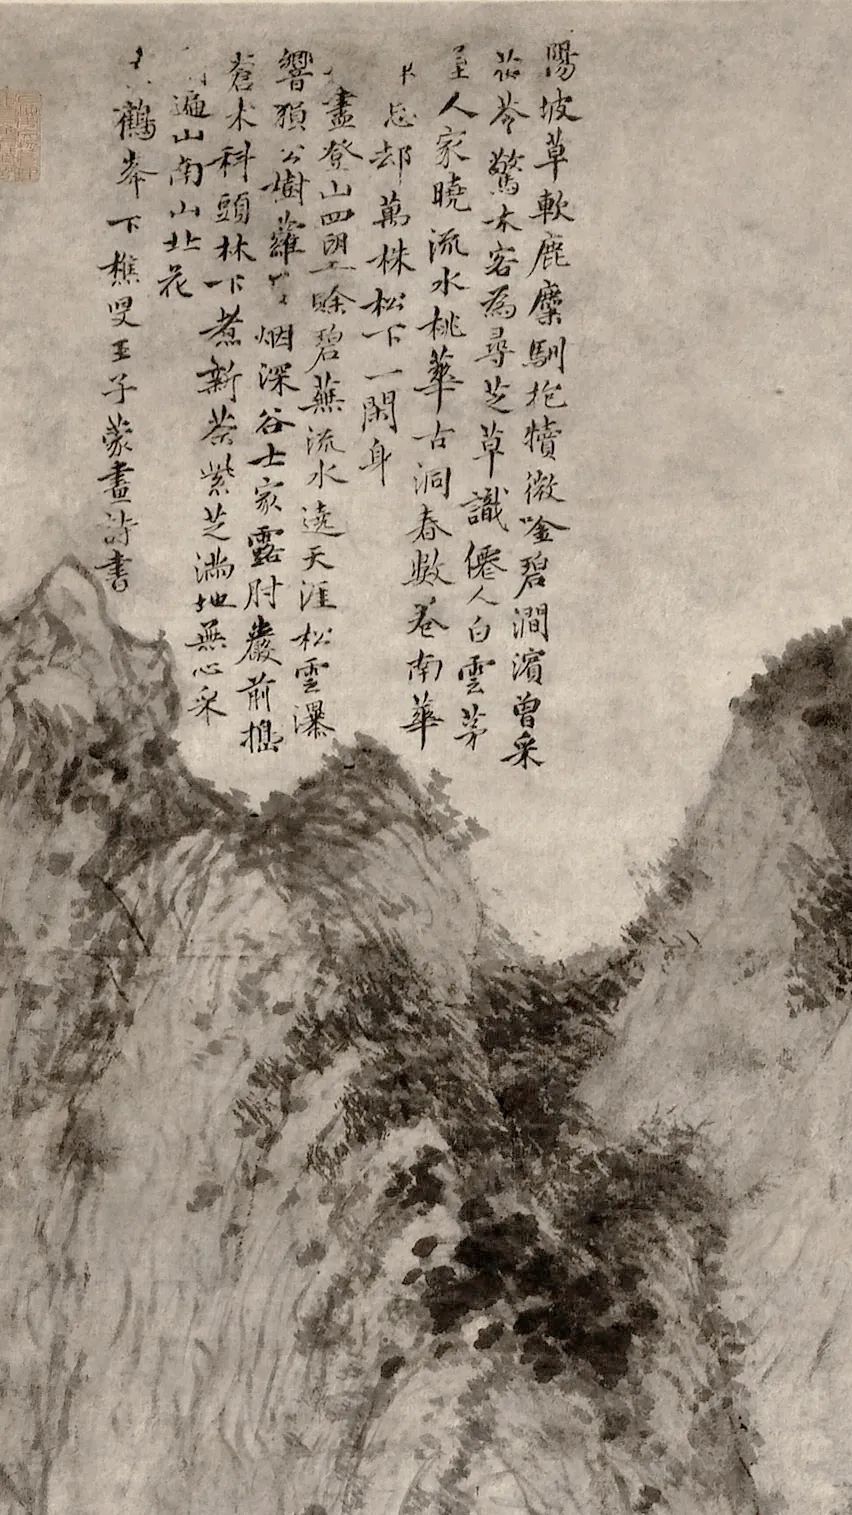 陽坡草軟鹿麋馴抱犢微唫碧澗濱曾采
茯苓驚木客為尋芝草識僊人白雲茅
人家曉流水桃華古洞春數卷南華
忘却萬株松下一閑身
盡登山四望賒碧蕪流水遶天涯松雲瀑
響猿公樹蘿烟深谷士家露肘巖前擣
蒼术科頭林下煮新茶紫芝滿地無心采
遍山南山北花
鶴峯下樵叟王子蒙畫詩書